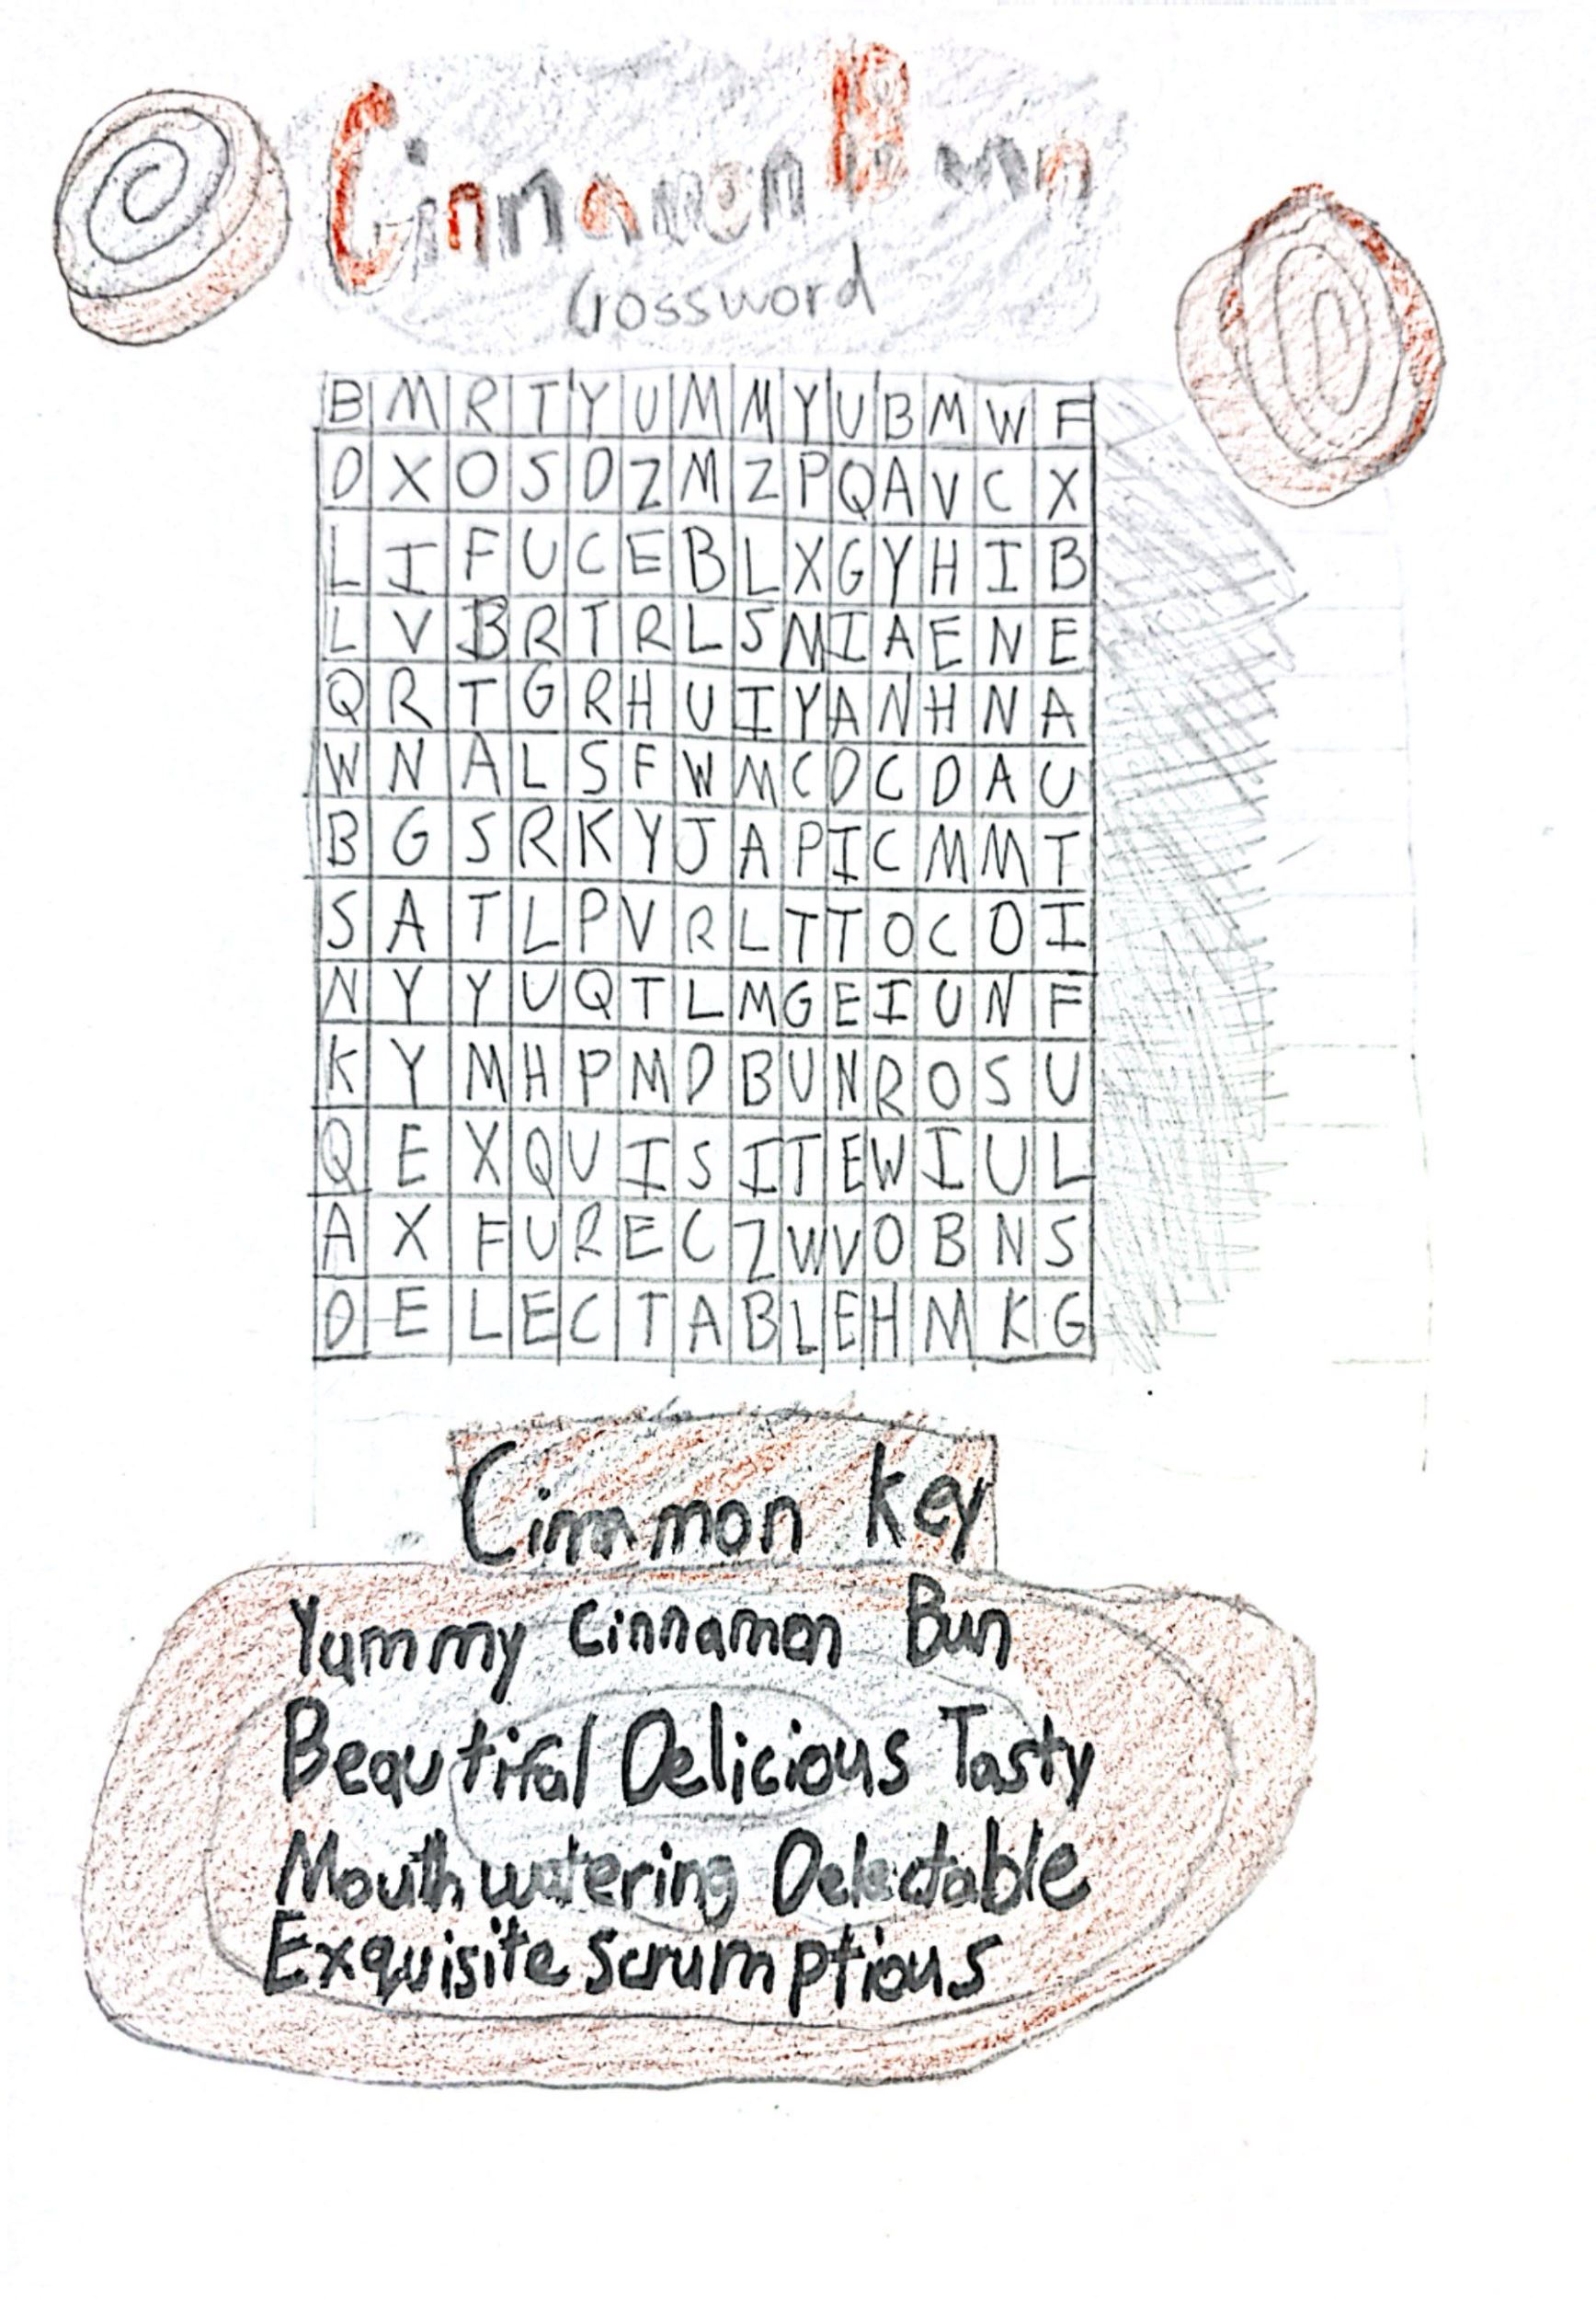 Cinnamon Bun
Crossword
B M R T Y U M M Y U B M W F
D X O S D Z M Z P Q A V C X
L I F U C E B L X G Y H I B
L V B R T R L S M I A E N E
Q R T G R H U I Y A N H N A
W N A L S F W M C D C D A U
B G S R K Y J A P I C M M T
S A T L P V R L T T O C O I
N Y Y U Q T L M G E I U N F
K Y M H P M D B U N R O S U
Q E X Q U I S I T E W I U L
A X F U R E C Z W V O B N S
D E L E C T A B L E H M K G
Cinnamon Key
Yummy Cinnamon Bun
Beautiful Delicious Tasty
Mouthwatering Delectable
Exquisite Scrumptious